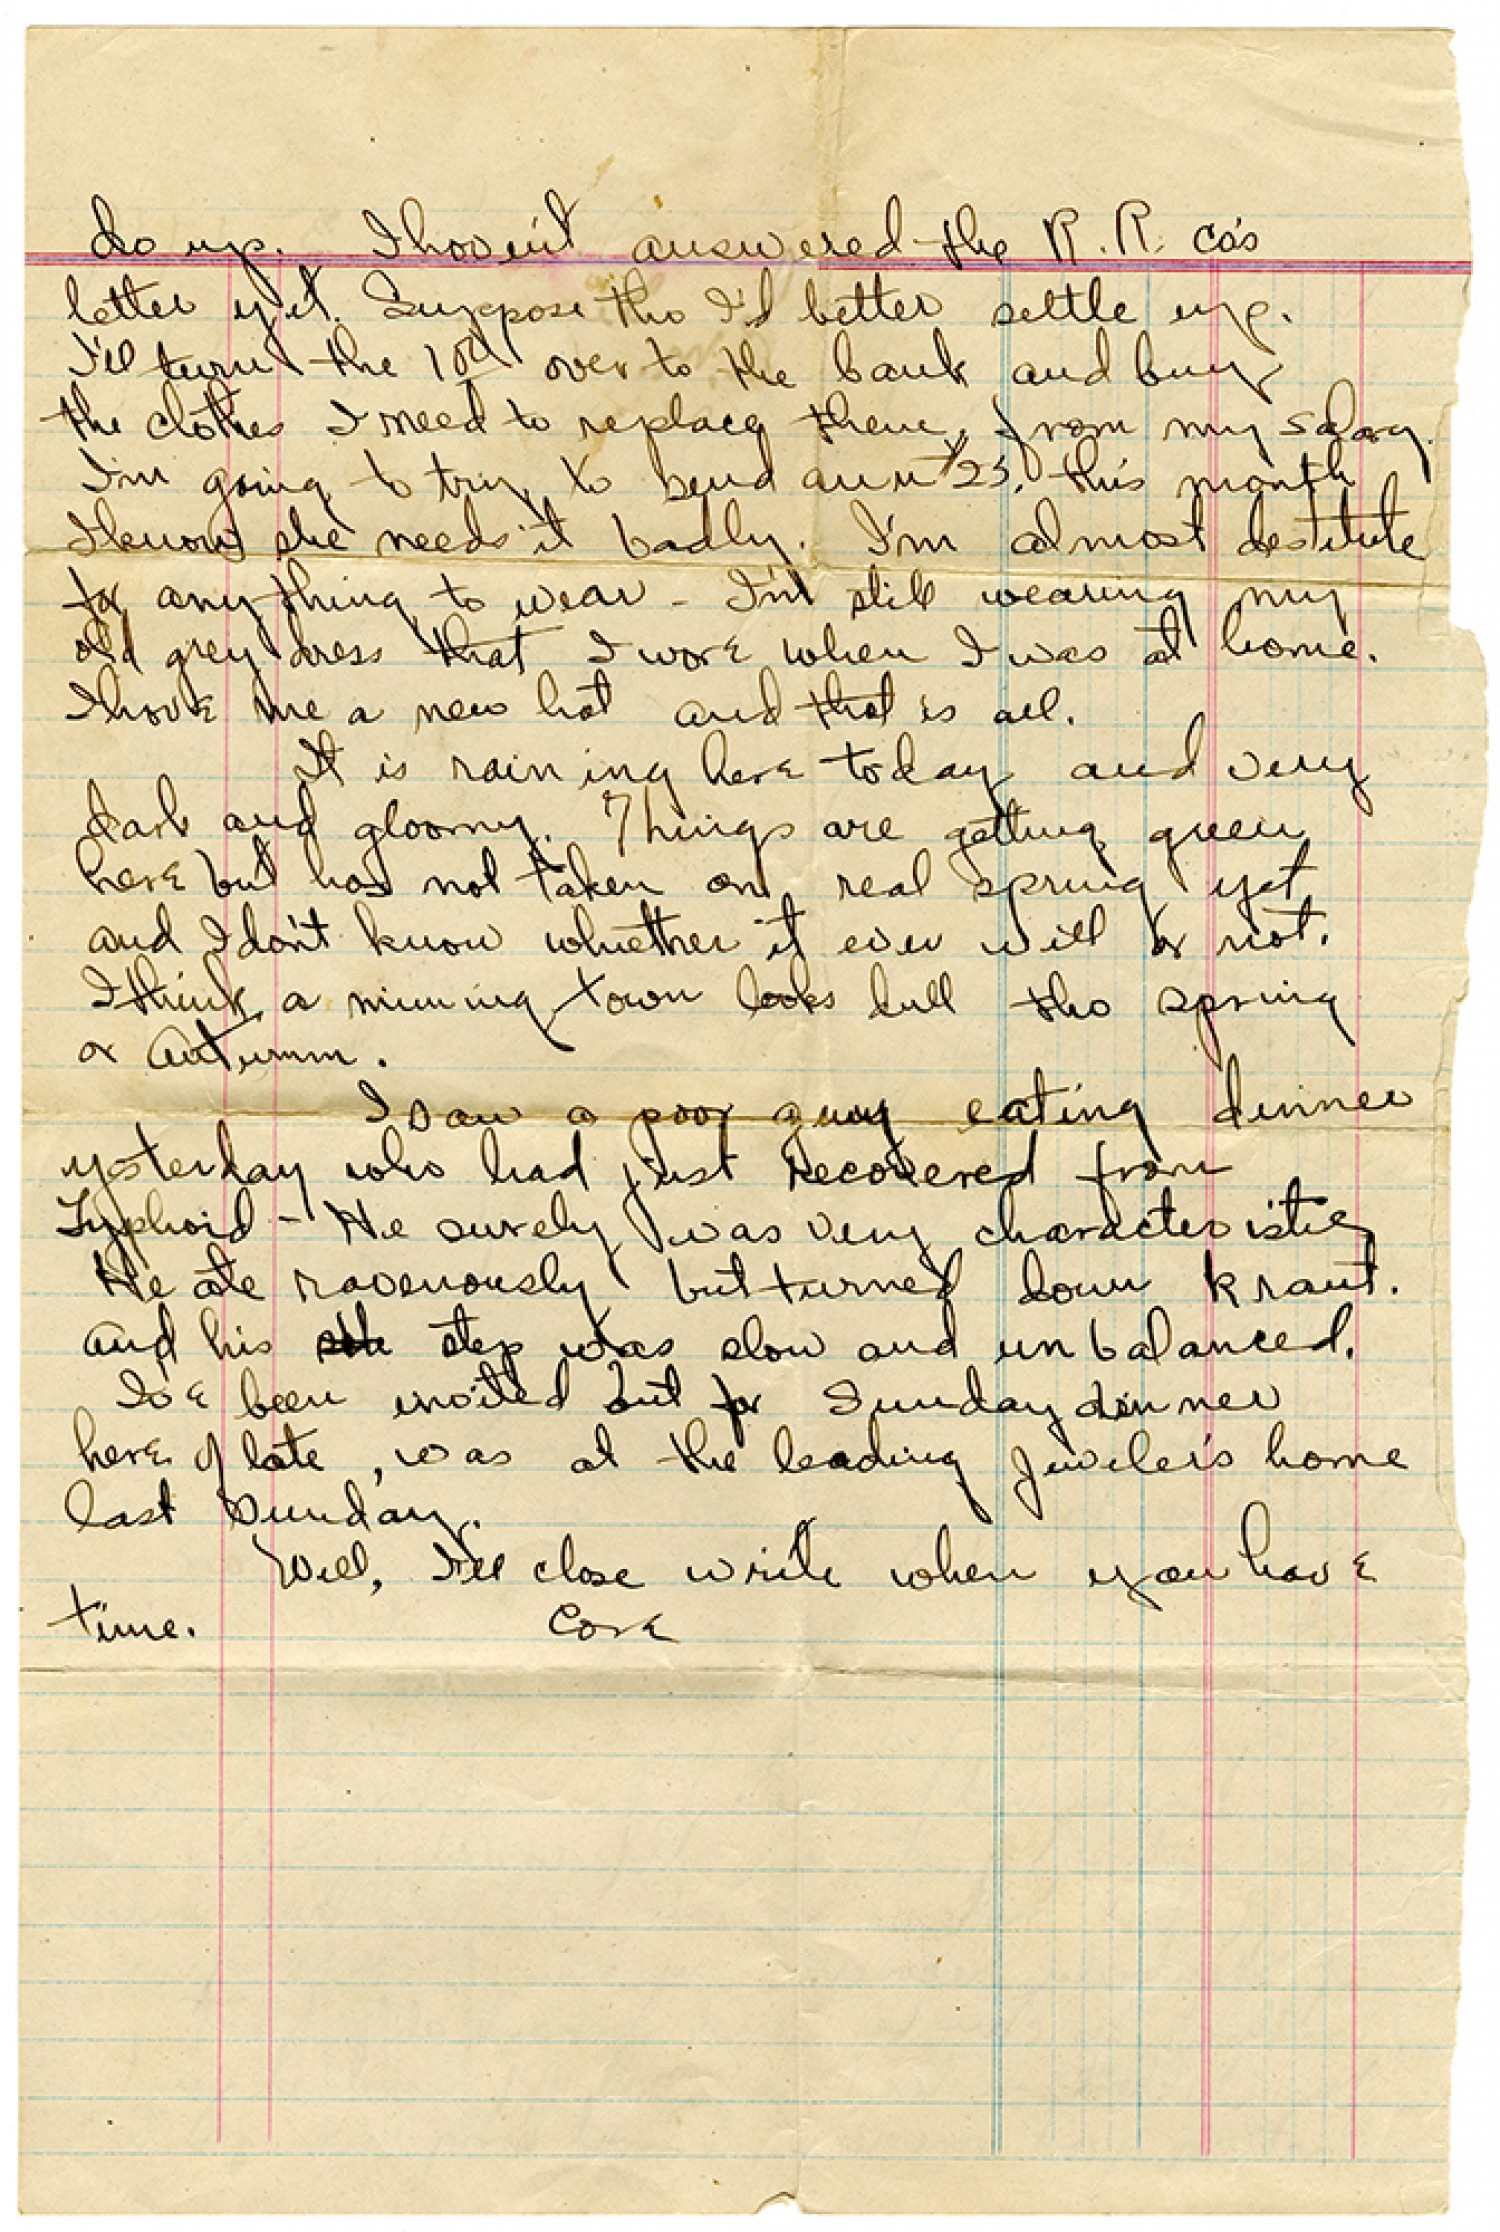 do up. I haven't answered the R.R. co's
letter yet. Suppose tho I'd better settle up.
I'll turn the 100 over to the bank and buy
the clothes I need to replace them, from my salary.
I'm going to try to send aunt $25. this month
I know she needs it badly. I'm almost destitute
for anything to wear - I'm still wearing my
old grey dress that I wore when I was at home.
I have me a new hat and that is all.
It is raining here today and very
dark and gloomy. Things are getting green
here but has not taken on real spring yet
and I don't know whether it ever will or not.
I think a minning town looks dull tho spring
or Autumm.
I saw a poor guy eating dinner
yesterday who had just recovered from
Typhoid - He surely was very characteristic
He ate ravenously but turned down kraut.
and his step was slow and unbalanced.
I've been invited out for Sunday dinner
here of late, was at the leading Jeweler's home
last Sunday.
Well, I'll close write when you have
time. Core